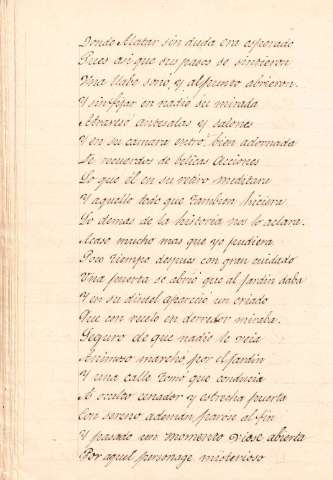 Donde Alatar sin duda era esperado
Pues asi que sus pasos se sintieron
Una llabe sonó, y al punto abrieron.
Y sin fijar en nadie su mirada
Atravesó antesalas y salones
Y en su camara entró, bien adornada
De recuerdos de belicas acciones
Lo que él en su retiro meditara
Y aquello todo que tambien hiciera
Lo demas de la historia nos lo aclara.
Acaso mucho mas que yo pudiera
Poco tiempo despues con gran cuidado
Una puerta se abrió que al jardin daba
Y en su dintel apareció un criado
Que con recelo en derredor miraba.
Seguro de que nadie le veia
Animoso marchó por el jardin
Y una calle tomó que conducia
A oculto cenador y estrecha puerta
Con sereno ademán parose al fin
Y pasado un momento viose abierta
Por aquel personage misterioso